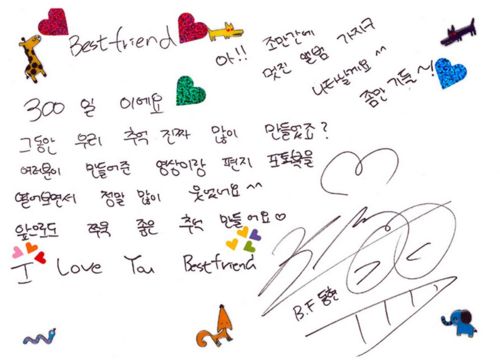 Bestfriend
300일 이에요
그동안 우리 추억 진짜 많이 만들었죠?
여러분이 만들어준 영상이랑 편지 포토북을
열어보면서 정말 많이 웃었어요 ^^
앞으로도 쭈욱 좋은 추억 만들어요♡
I Love You Bestfriend
아!! 조만간에
멋진 앨범 가지구
나타날게요 ^^
좀만 기둘~!
B.F 동현